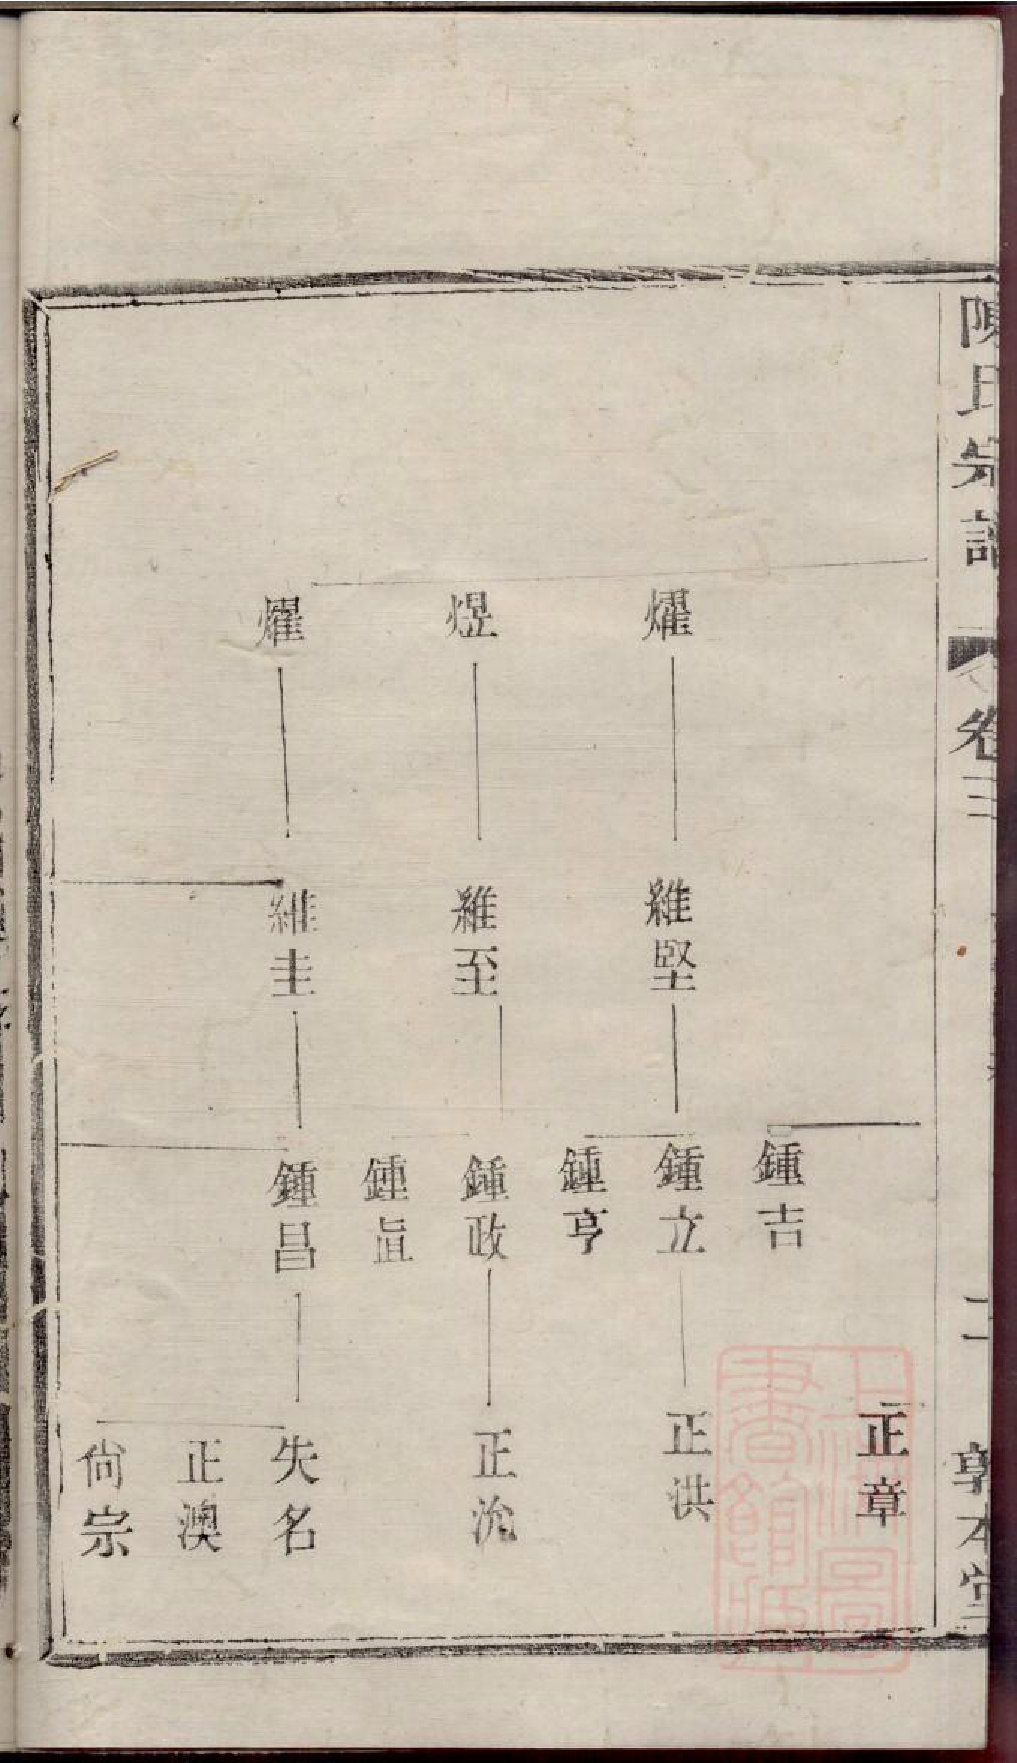 陳氏宗譜
卷三
二
敦本堂
燿
煜
燿
維堅
維至
維圭
鍾吉
鍾立
鍾亨
鍾政
鍾眞
鍾昌
正章
正洪
正沇
失名
正澳
尙宗
上海圖書館藏